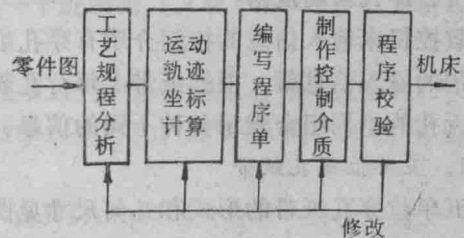 零件图
工艺规程分析
运动轨迹坐标计算
编写程序单
制作控制介质
程序校验
机床
修改